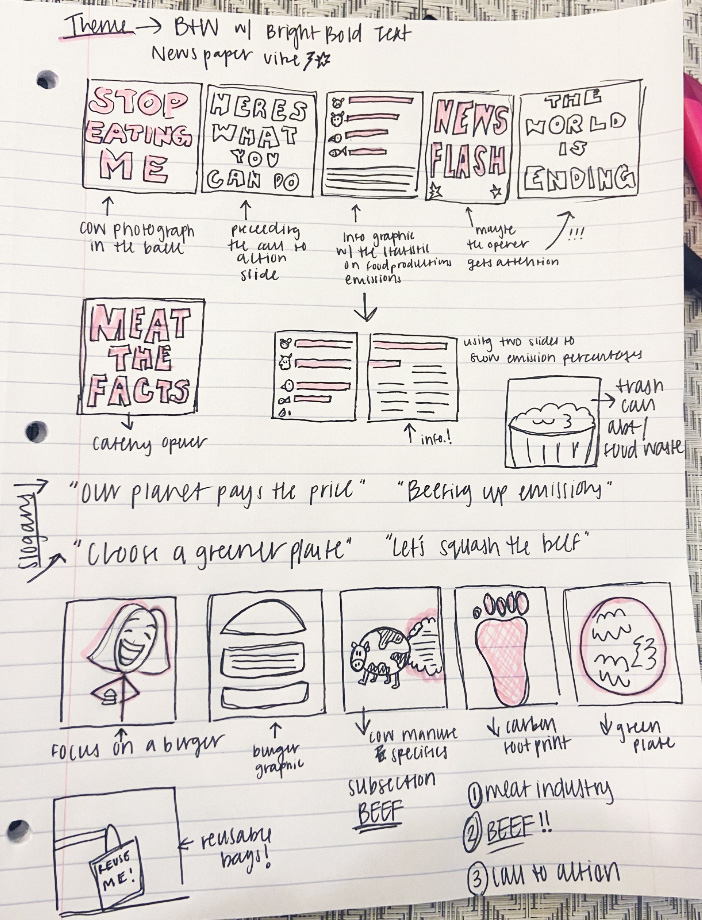 Theme → B+W w/ Bright Bold Text
Newspaper vibe
STOP
EATING
ME
HERES
WHAT
YOU
CAN DO
NEWS
FLASH
THE
WORLD
IS
ENDING
cow photograph
in the back
preceding
the call to
action
slide
Info graphic
w/ the statistic
on food productions
emissions
maybe
the opener
gets attention
!!!
MEAT
THE
FACTS
catchy opener
using two slides to
show emission percentages
info!
trash
can
abt/
food waste
slogans
"Our planet pays the price" "Beefing up emissions"
"Choose a greener plate" "Let's squash the beef"
Focus on a burger
burger
graphic
cow manure
& specifics
subsection
BEEF
carbon
footprint
green
plate
REUSE
ME!
reusable
bags!
① meat industry
② BEEF!!
③ call to action